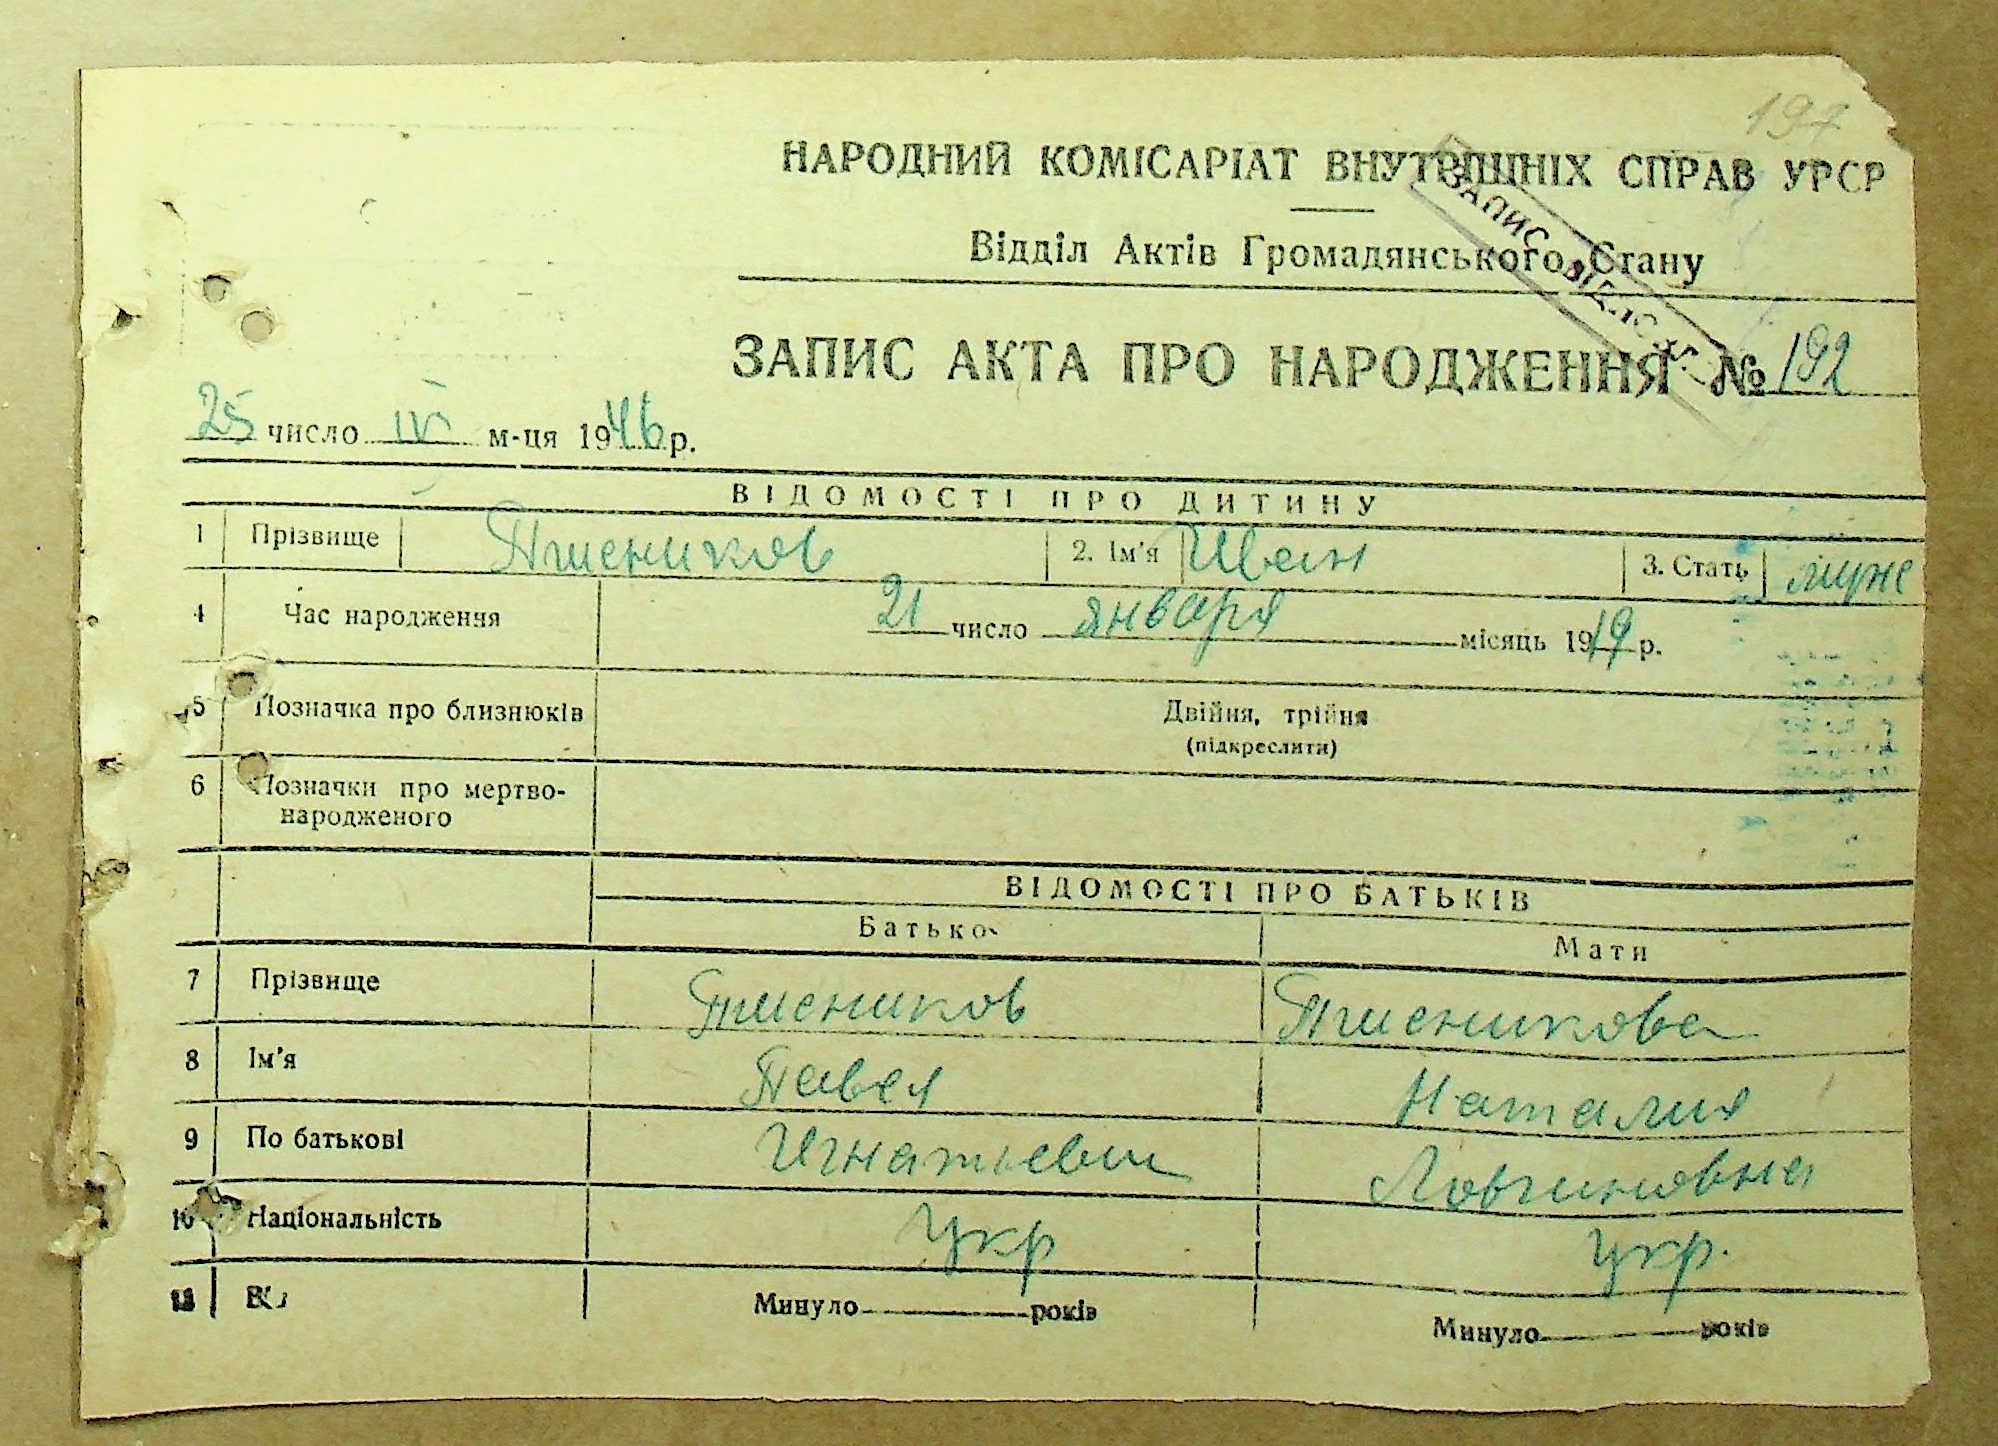 197
НАРОДНИЙ КОМІСАРІАТ ВНУТРІШНІХ СПРАВ УРСР
Відділ Актів Громадянського Стану
ЗАПИС ВІДНОВЛ.
ЗАПИС АКТА ПРО НАРОДЖЕННЯ № 192
25 число IV м-ця 1946 р.
ВІДОМОСТІ ПРО ДИТИНУ
1 Прізвище Пшеников 2. Ім'я Иван 3. Стать муж
4 Час народження 21 число января місяць 1919 р.
5 Позначка про близнюків Двійня, трійня
(підкреслити)
6 Позначки про мертво-
народженого
ВІДОМОСТІ ПРО БАТЬКІВ
Батько Мати
7 Прізвище Пшеников Пшеникова
8 Ім'я Павел Наталия
9 По батькові Игнатьевич Логвиновна
10 Національність Укр укр.
11 Минуло років Минуло років